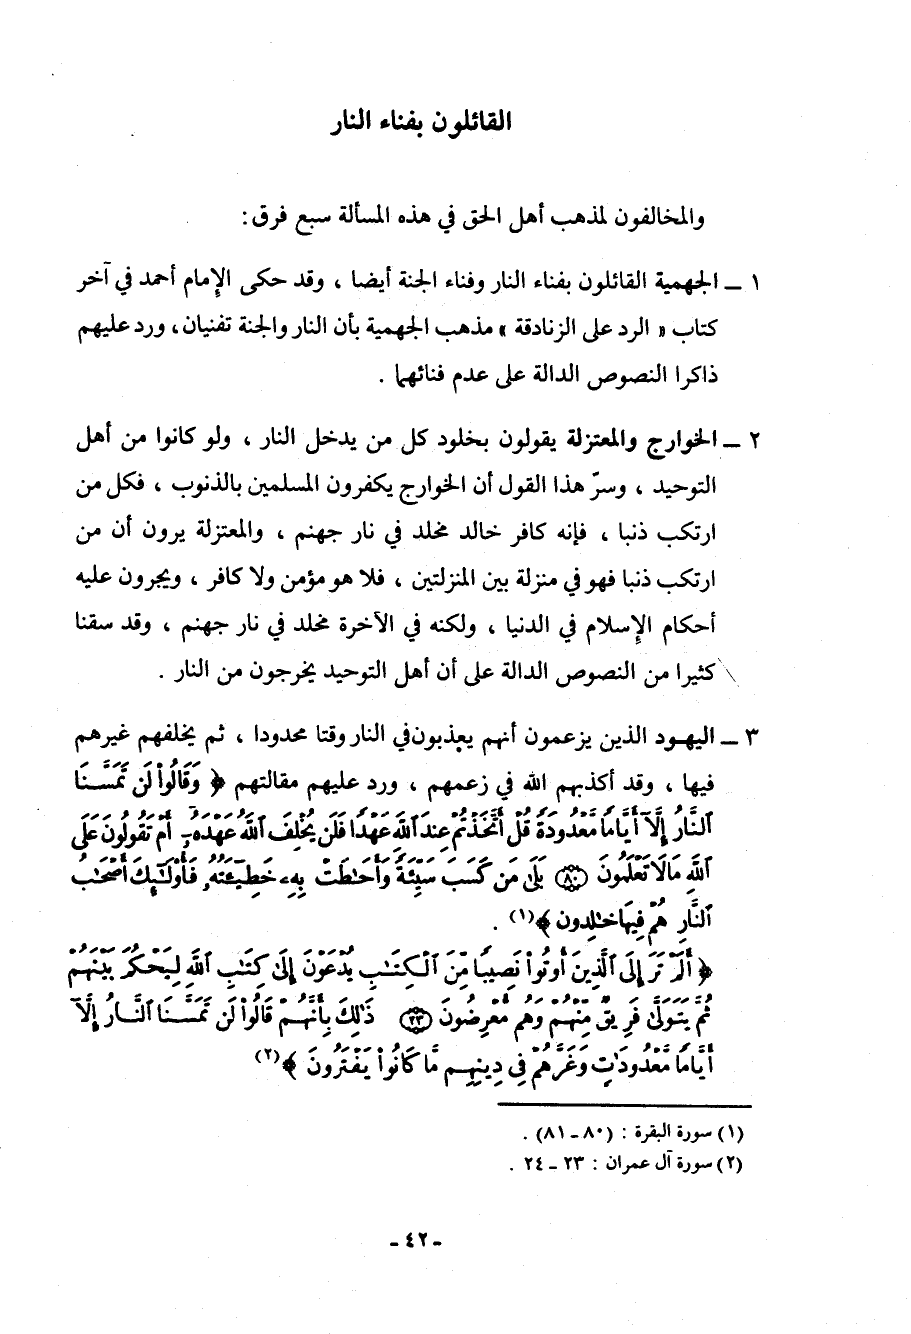 القائلون بفناء النار
والمخالفون لمذهب أهل الحق في هذه المسألة سبع فرق :
١ ــ الجهمية القائلون بفناء النار وفناء الجنة أيضا ، وقد حكى الإمام أحمد في آخر
كتاب « الرد على الزنادقة » مذهب الجهمية بأن النار والجنة تفنيان ، ورد عليهم
ذاكرا النصوص الدالة على عدم فنائهما .
٢ ــ الخوارج والمعتزلة يقولون بخلود كل من يدخل النار ، ولو كانوا من أهل
التوحيد ، وسرّ هذا القول أن الخوارج يكفرون المسلمين بالذنوب ، فكل من
ارتكب ذنبا ، فإنه كافر خالد مخلد في نار جهنم ، والمعتزلة يرون أن من
ارتكب ذنبا فهو في منزلة بين المنزلتين ، فلا هو مؤمن ولا كافر ، ويجرون عليه
أحكام الإسلام في الدنيا ، ولكنه في الآخرة مخلد في نار جهنم ، وقد سقنا
كثيرا من النصوص الدالة على أن أهل التوحيد يخرجون من النار .
٣ ــ اليهود الذين يزعمون أنهم يعذبون في النار وقتا محدودا ، ثم يخلفهم غيرهم
فيها ، وقد أكذبهم الله في زعمهم ، ورد عليهم مقالتهم ﴿ وَقَالُوا۟ لَن تَمَسَّنَا
ٱلنَّارُ إِلَّآ أَيَّامًا مَّعْدُودَةً قُلْ أَتَّخَذْتُمْ عِندَ ٱللَّهِ عَهْدًا فَلَن يُخْلِفَ ٱللَّهُ عَهْدَهُۥٓ أَمْ تَقُولُونَ عَلَى
ٱللَّهِ مَا لَا تَعْلَمُونَ ٨٠ بَلَىٰ مَن كَسَبَ سَيِّئَةً وَأَحَٰطَتْ بِهِۦ خَطِيٓـَٔتُهُۥ فَأُو۟لَٰٓئِكَ أَصْحَٰبُ
ٱلنَّارِ هُمْ فِيهَا خَٰلِدُون ﴾ (١) .
﴿ أَلَمْ تَرَ إِلَى ٱلَّذِينَ أُوتُوا۟ نَصِيبًا مِّنَ ٱلْكِتَٰبِ يُدْعَوْنَ إِلَىٰ كِتَٰبِ ٱللَّهِ لِيَحْكُمَ بَيْنَهُمْ
ثُمَّ يَتَوَلَّىٰ فَرِيقٌ مِّنْهُمْ وَهُم مُّعْرِضُونَ ٢٣ ذَٰلِكَ بِأَنَّهُمْ قَالُوا۟ لَن تَمَسَّنَا ٱلنَّارُ إِلَّآ
أَيَّامًا مَّعْدُودَٰتٍ وَغَرَّهُمْ فِى دِينِهِم مَّا كَانُوا۟ يَفْتَرُونَ ﴾ (٢)
(١) سورة البقرة : (٨٠ ــ ٨١) .
(٢) سورة آل عمران : ٢٣ ــ ٢٤ .
ـ ٤٢ ـ